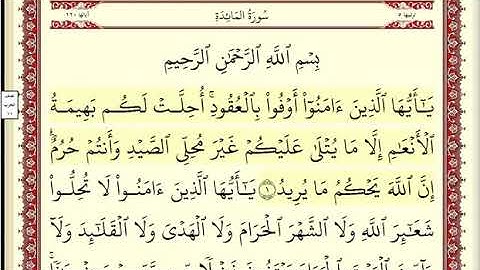 ترتيبها ٥ سُورَةُ المَائِدَةِ آياتها ١٢٠
بِسْمِ ٱللَّهِ ٱلرَّحْمَٰنِ ٱلرَّحِيمِ
يَٰٓأَيُّهَا ٱلَّذِينَ ءَامَنُوٓا۟ أَوْفُوا۟ بِٱلْعُقُودِ ۚ أُحِلَّتْ لَكُم بَهِيمَةُ
ٱلْأَنْعَٰمِ إِلَّا مَا يُتْلَىٰ عَلَيْكُمْ غَيْرَ مُحِلِّى ٱلصَّيْدِ وَأَنتُمْ حُرُمٌ ۗ
إِنَّ ٱللَّهَ يَحْكُمُ مَا يُرِيدُ ١ يَٰٓأَيُّهَا ٱلَّذِينَ ءَامَنُوا۟ لَا تُحِلُّوا۟
شَعَٰٓئِرَ ٱللَّهِ وَلَا ٱلشَّهْرَ ٱلْحَرَامَ وَلَا ٱلْهَدْىَ وَلَا ٱلْقَلَٰٓئِدَ وَلَآ